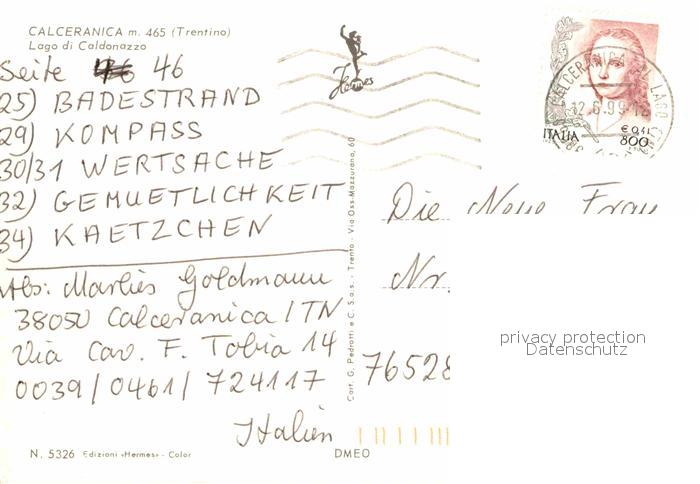 CALCERANICA m. 465 (Trentino)
Lago di Caldonazzo
Seite 46
25) BADESTRAND
29) KOMPASS
30/31 WERTSACHE
32) GEMUETLICHKEIT
34) KAETZCHEN
Abs: Marlies Goldmann
38050 Calceranica / TN
Via Cav. F. Tobia 14
0039/0461/724117
Italien
N. 5326 Edizioni «Hermes» - Color
Hermes
Cart. G. Pedrotti e C. S.a.s. - Trento - Via Oss-Mazzurana, 60
DMEO
ITALIA
€ 0,41
800
CALCERANICA AL LAGO
12.6.99
Die Neue Frau
Nr.
76528
privacy protection
Datenschutz